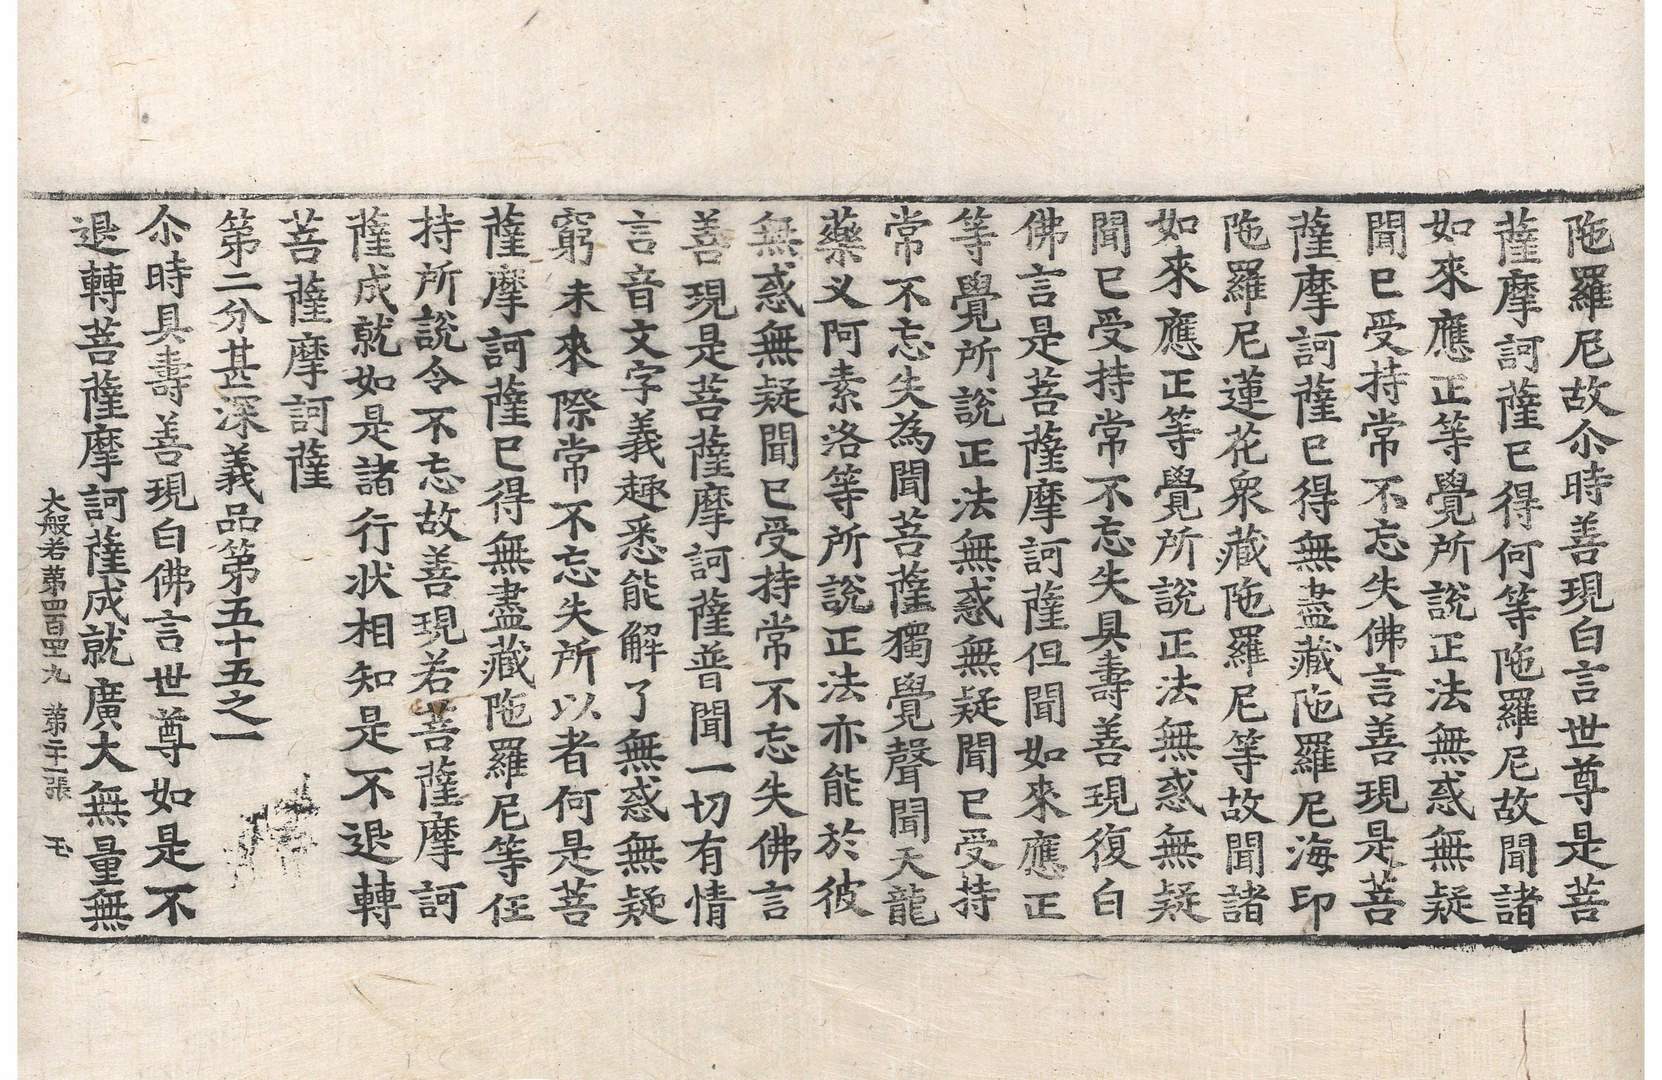 陁羅尼故尒時善現白言世尊是菩
薩摩訶薩已得何等陁羅尼故聞諸
如來應正等覺所說正法無惑無疑
聞已受持常不忘失佛言善現是菩
薩摩訶薩已得無盡藏陁羅尼海印
陁羅尼蓮花衆藏陁羅尼等故聞諸
如來應正等覺所說正法無惑無疑
聞已受持常不忘失具壽善現復白
佛言是菩薩摩訶薩但聞如來應正
等覺所說正法無惑無疑聞已受持
常不忘失為聞菩薩獨覺聲聞天龍
藥义阿素洛等所說正法亦能於彼
無惑無疑聞已受持常不忘失佛言
善現是菩薩摩訶薩普聞一切有情
言音文字義趣悉能解了無惑無疑
窮未來際常不忘失所以者何是菩
薩摩訶薩已得無盡藏陁羅尼等任
持所說令不忘故善現若菩薩摩訶
薩成就如是諸行狀相知是不退轉
菩薩摩訶薩
第二分甚深義品第五十五之一
尒時具壽善現白佛言世尊如是不
退轉菩薩摩訶薩成就廣大無量無
大般若第四百四十九　第二十二張　玉